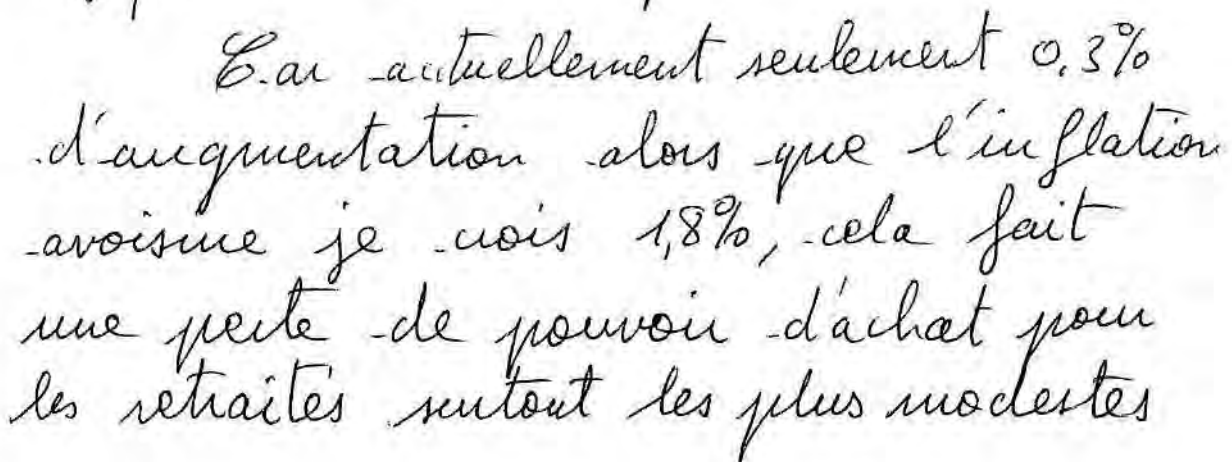 Car actuellement seulement 0,3%
d'augmentation alors que l'inflation
avoisine je crois 1,8%, cela fait
une perte de pouvoir d'achat pour
les retraités surtout les plus modestes